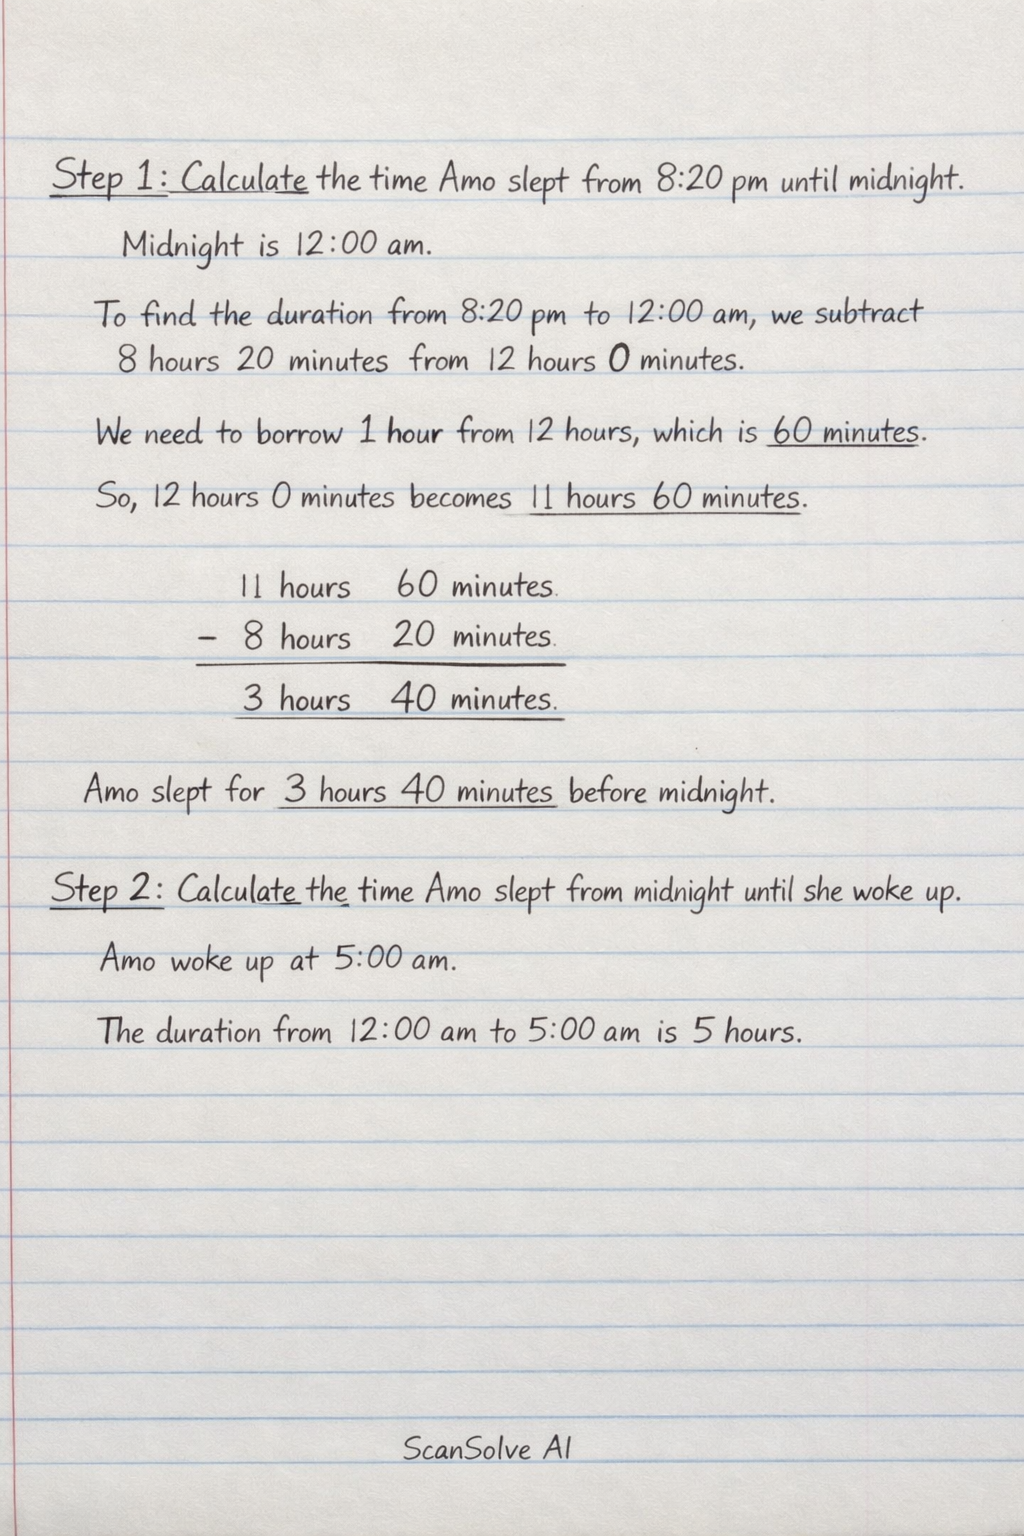 Step 1: Calculate the time Amo slept from 8:20 pm until midnight.
Midnight is 12:00 am.
To find the duration from 8:20 pm to 12:00 am, we subtract
8 hours 20 minutes from 12 hours 0 minutes.
We need to borrow 1 hour from 12 hours, which is 60 minutes.
So, 12 hours 0 minutes becomes 11 hours 60 minutes.
11 hours 60 minutes.
- 8 hours 20 minutes.
3 hours 40 minutes.
Amo slept for 3 hours 40 minutes before midnight.
Step 2: Calculate the time Amo slept from midnight until she woke up.
Amo woke up at 5:00 am.
The duration from 12:00 am to 5:00 am is 5 hours.
ScanSolve AI